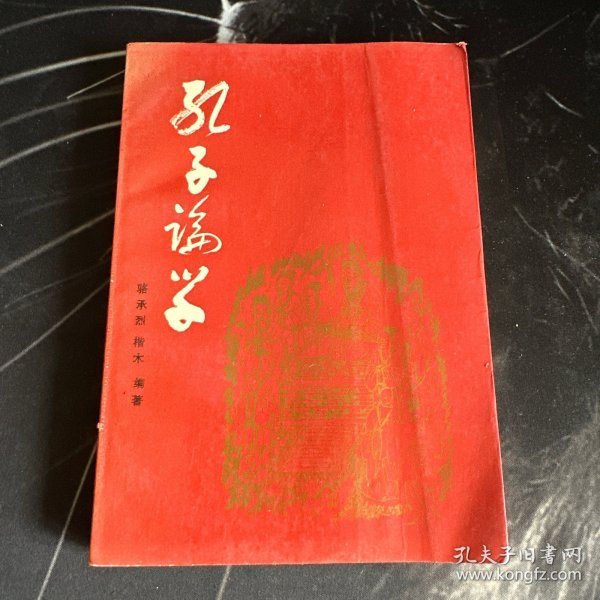 孔子论学
骆承烈 楷木 编著
孔夫子旧书网
www.kongfz.com